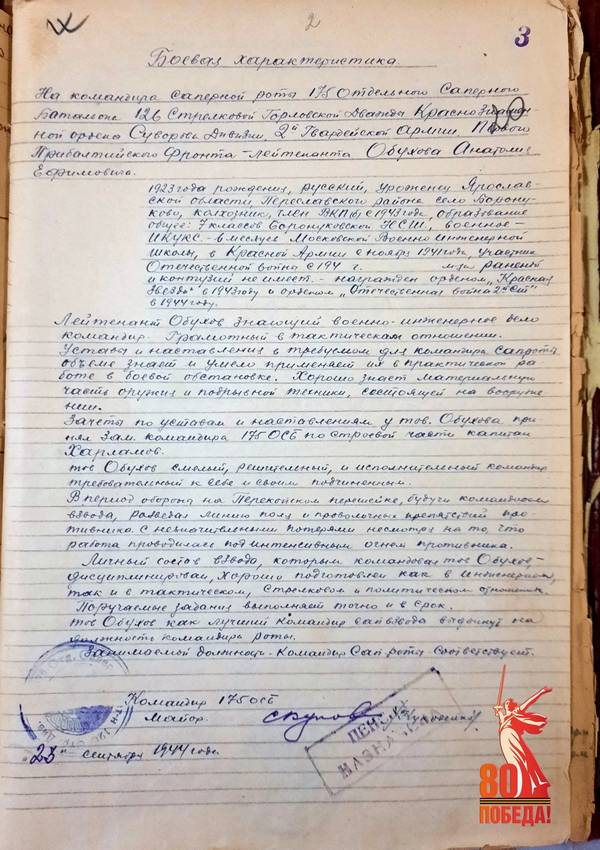 2
3
Боевая характеристика.
На командира саперной роты 175 Отдельного Саперного
Батальона 126 Стрелковой Горловской Дважды Краснознамен-
ной ордена Суворова Дивизии 2й Гвардейской Армии, Первого
Прибалтийского Фронта - лейтенанта Обухова Анатолия
Ефимовича.
1923 года рождения, русский, уроженец Ярослав-
ской области, Переславского района село
колхозник, член ВКП/б с 1943 года, образование
общее: 7 классов НСШ, военное-
- 6 месяцев Московской Военно Инженерной
школы, в Красной Армии с ноября 1941 года, участник
Отечественной войны с 194 г. ранений
и контузий не имеет. - награжден орденом „Красная
Звезда" в 1943 году и орденом „Отечественная война 2й ст"
в 1944 году.
Лейтенант Обухов знающий военно-инженерное дело
командир. Грамотный в тактическом отношении.
Уставы и наставления в требуемом для командира сапроты
объеме знает и умело применяет их в практической ра-
боте в боевой обстановке. Хорошо знает материальную
часть оружия и подрывной техники, состоящей на вооруже
нии.
Зачеты по уставам и наставлениям у тов. Обухова при-
нял Зам. командира 175 ОСБ по строевой части капитан
Харламов.
тов Обухов смелый, решительный, и исполнительный командир
требовательный к себе и своим подчиненным.
В период обороны на Перекопском перешейке, будучи командиром
взвода, разведал линию полц и проволочных препятствий про-
тивника. С незначительными потерями несмотря на то, что
работа проводилась под интенсивным огнем противника.
Личный состав взвода, которым командовал тов Обухов-
дисциплинирован, хорошо подготовлен как в инженерном,
так и в тактическом, стрелковом и политическом отношении.
Поручаемые задания выполняет точно и в срок.
тов Обухов как лучший командир сапвзвода выдвинут на
должность командира роты.
Занимаемой должности - Командир Сап.роты - Соответствует.
Командир 175 ОСБ
Майор.
"23" сентября 1944 года
80
ПОБЕДА!